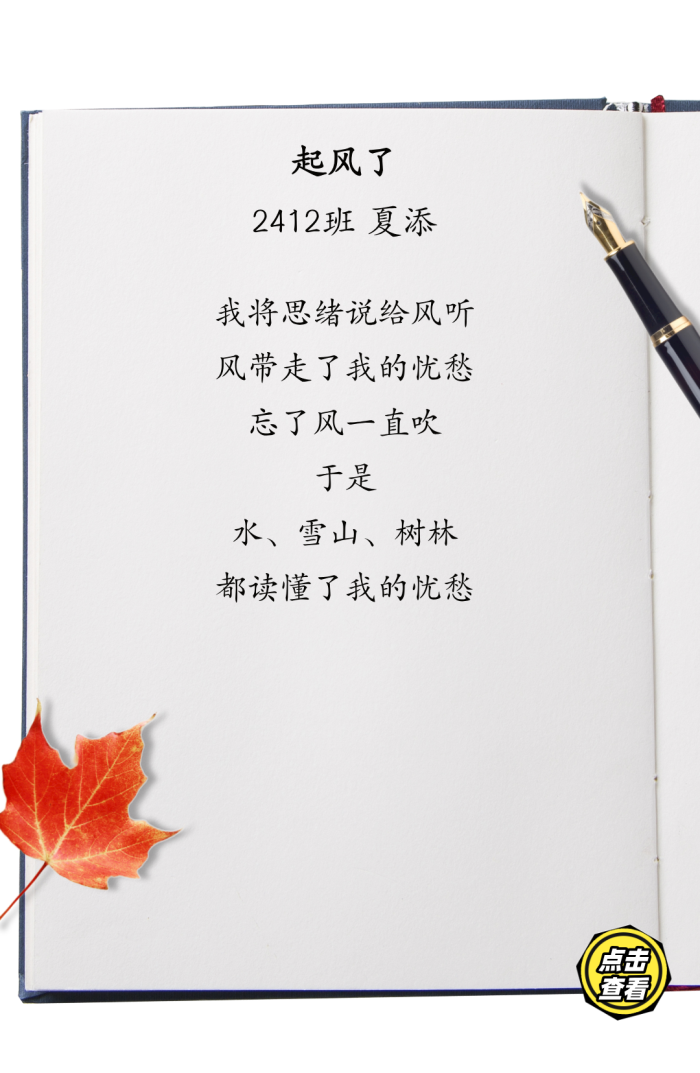 起风了
2412班 夏添
我将思绪说给风听
风带走了我的忧愁
忘了风一直吹
于是
水、雪山、树林
都读懂了我的忧愁
点击
查看